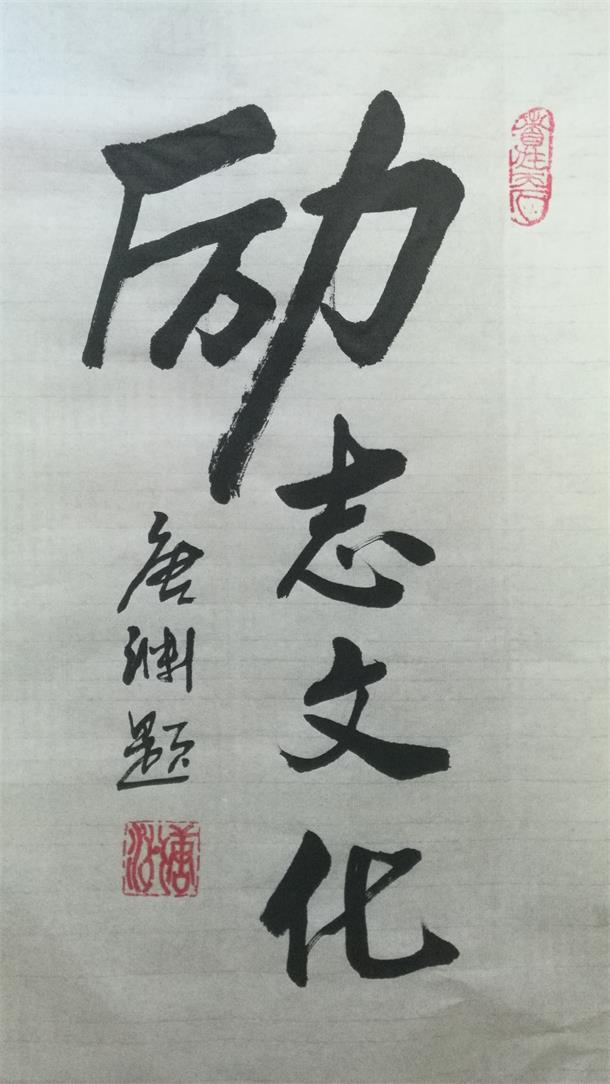 励志文化
唐渊题